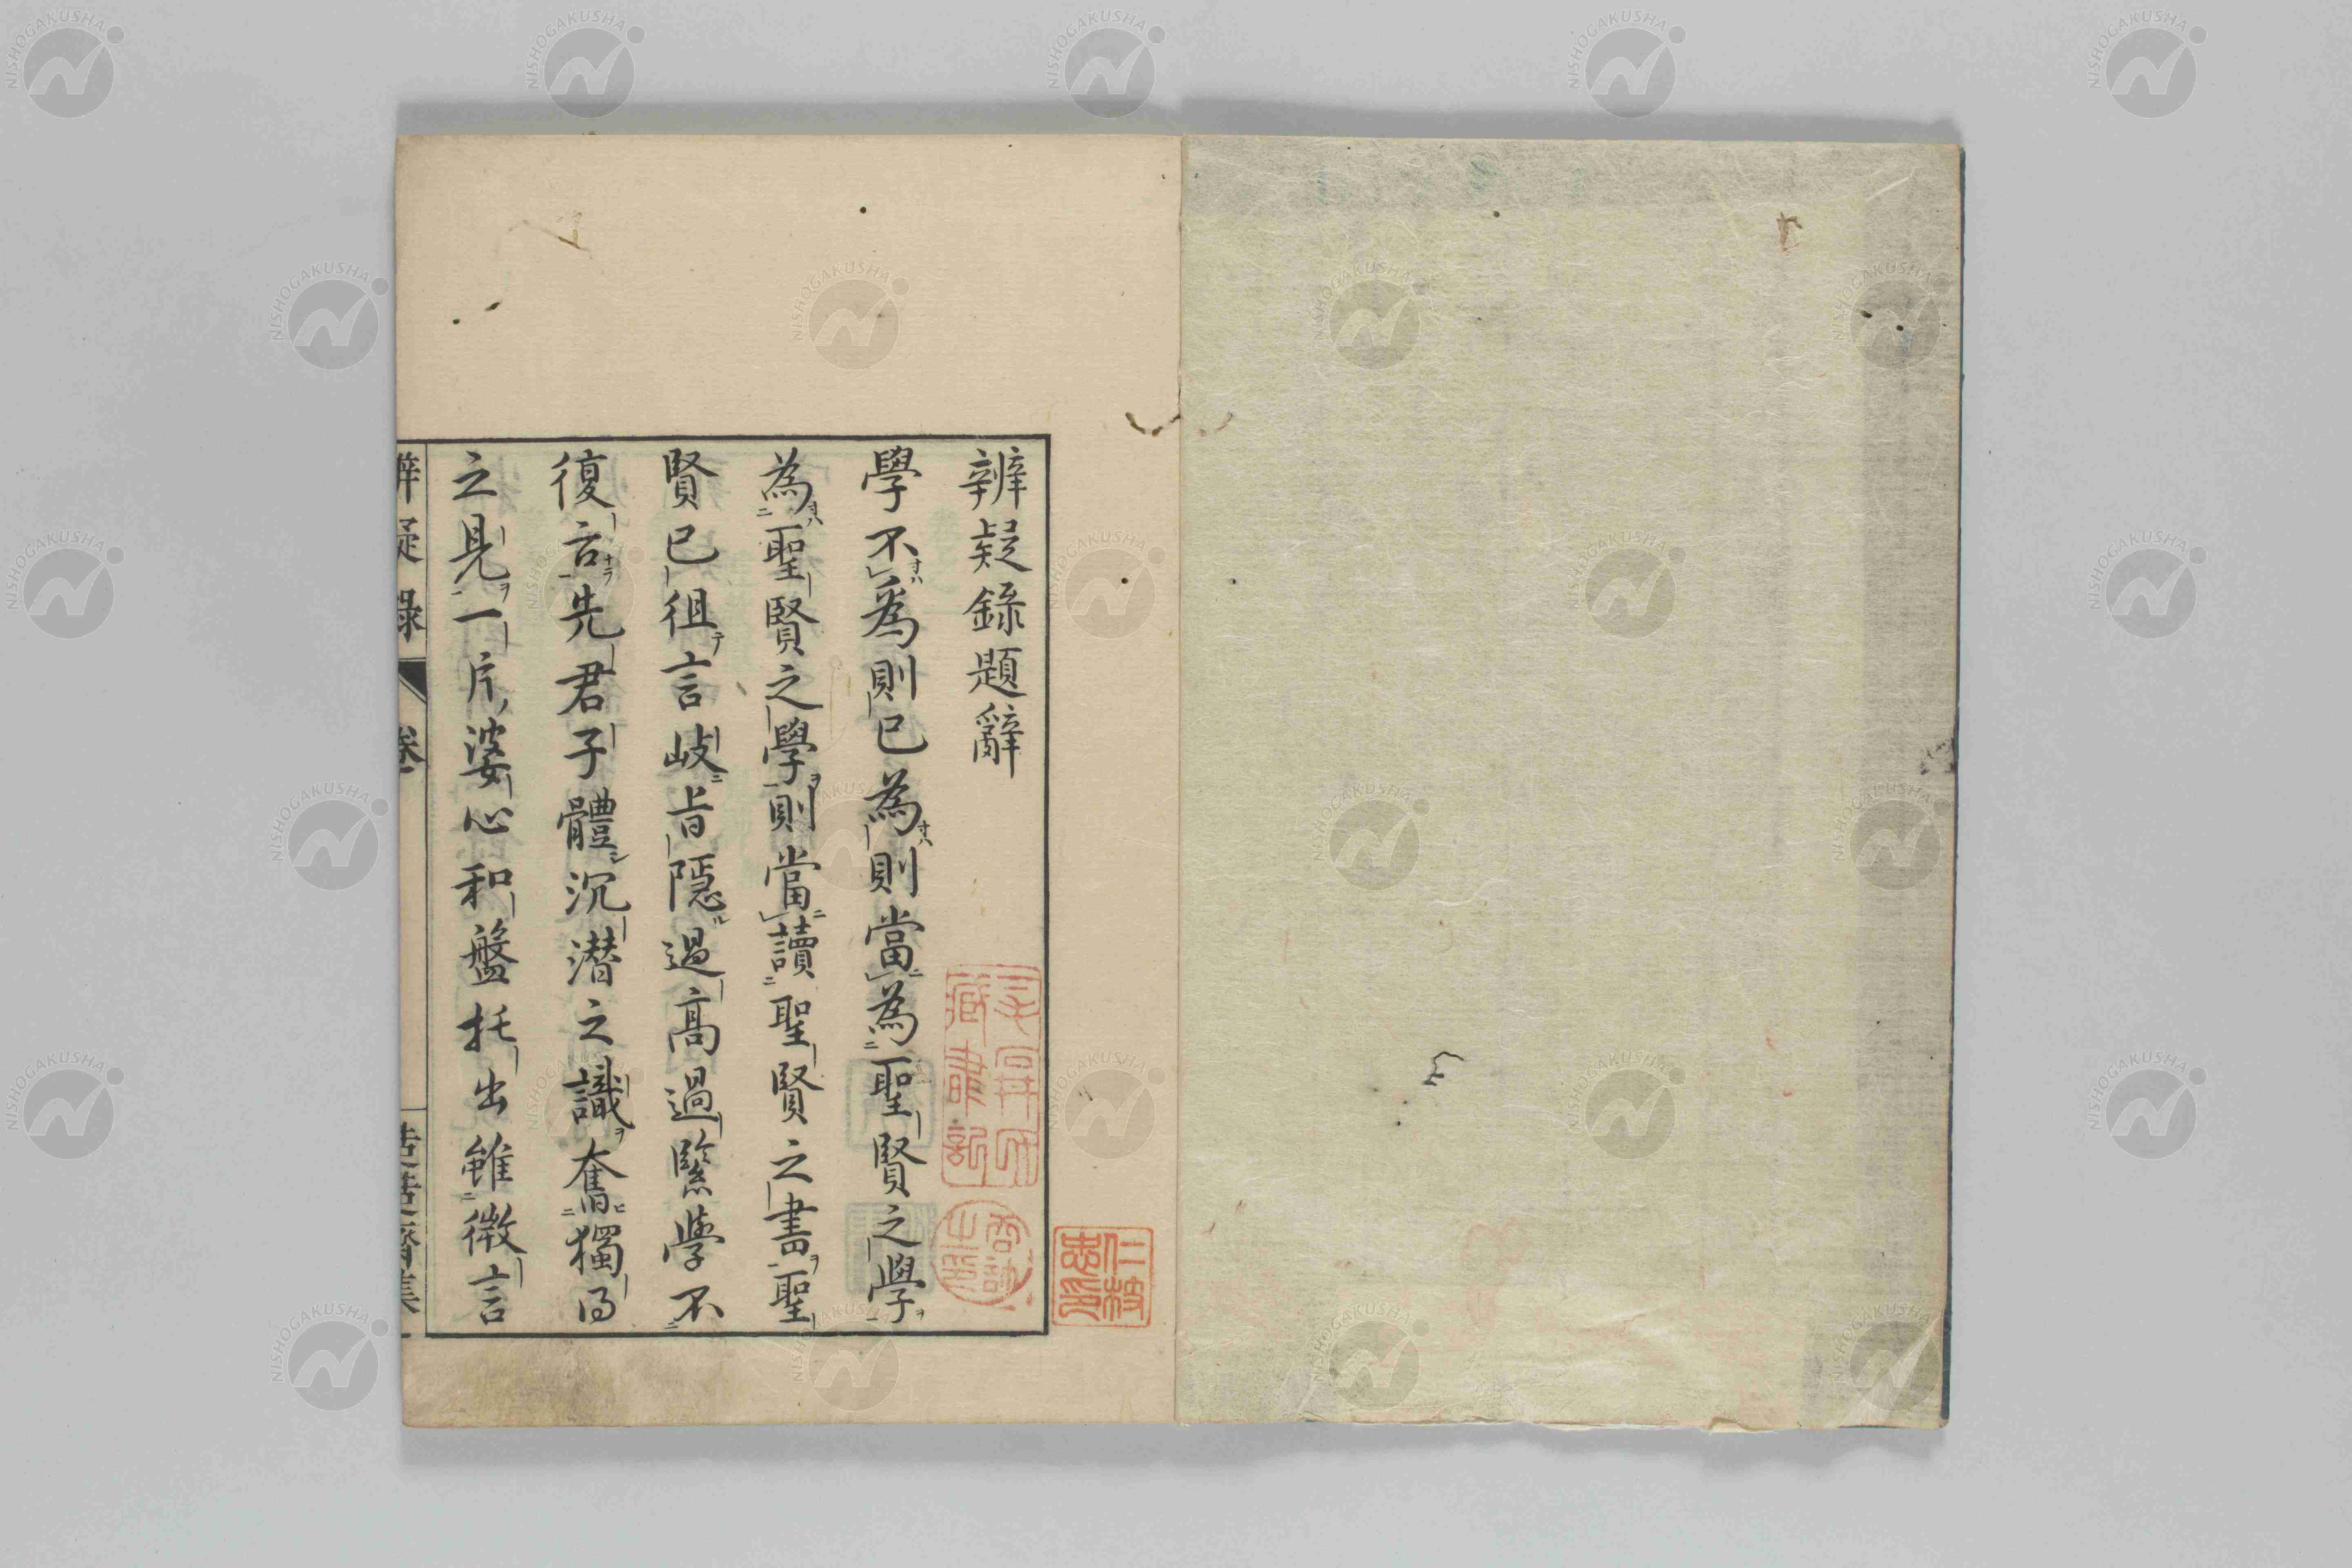 辨疑錄題辭
學不為則已為則當為聖賢之學
為聖賢之學則當讀聖賢之書聖
賢已徂言岐旨隱過高過繄學不
復言先君子體沉潜之識奮獨得
之見一片婆心和盤托出雖微言
辨疑錄
卷一
仁枝
忠
NISHOGAKUSHA